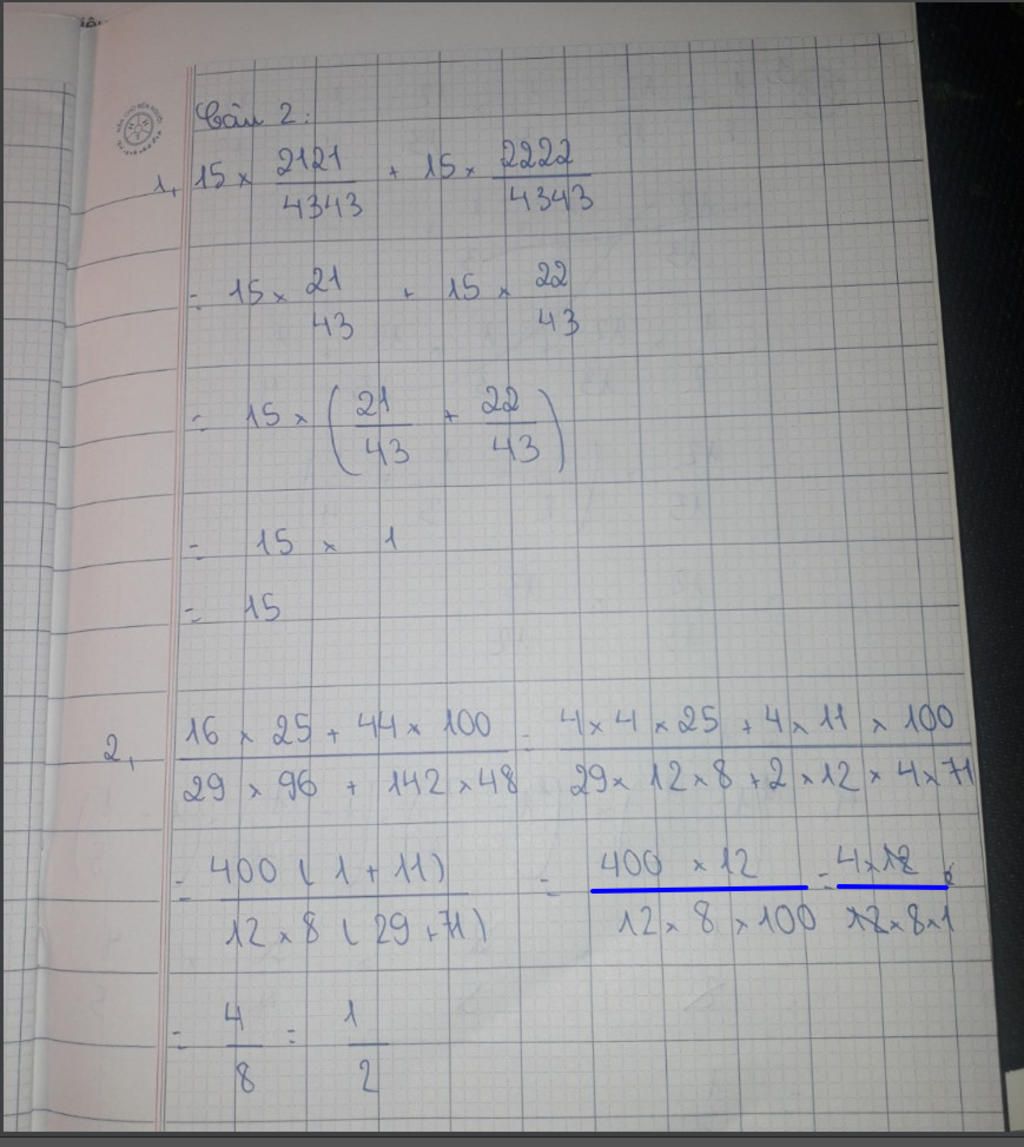 Câu 2:
1, 15 × 2121/4343 + 15 × 2222/4343
= 15 × 21/43 + 15 × 22/43
= 15 × (21/43 + 22/43)
= 15 × 1
= 15
2, (16 × 25 + 44 × 100)/(29 × 96 + 142 × 48) = (4 × 4 × 25 + 4 × 11 × 100)/(29 × 12 × 8 + 2 × 12 × 4 × 71)
= 400 (1 + 11)/12 × 8 (29 + 71) = 400 × 12/12 × 8 × 100 = 4 × 12/12 × 8 × 1
= 4/8 = 1/2